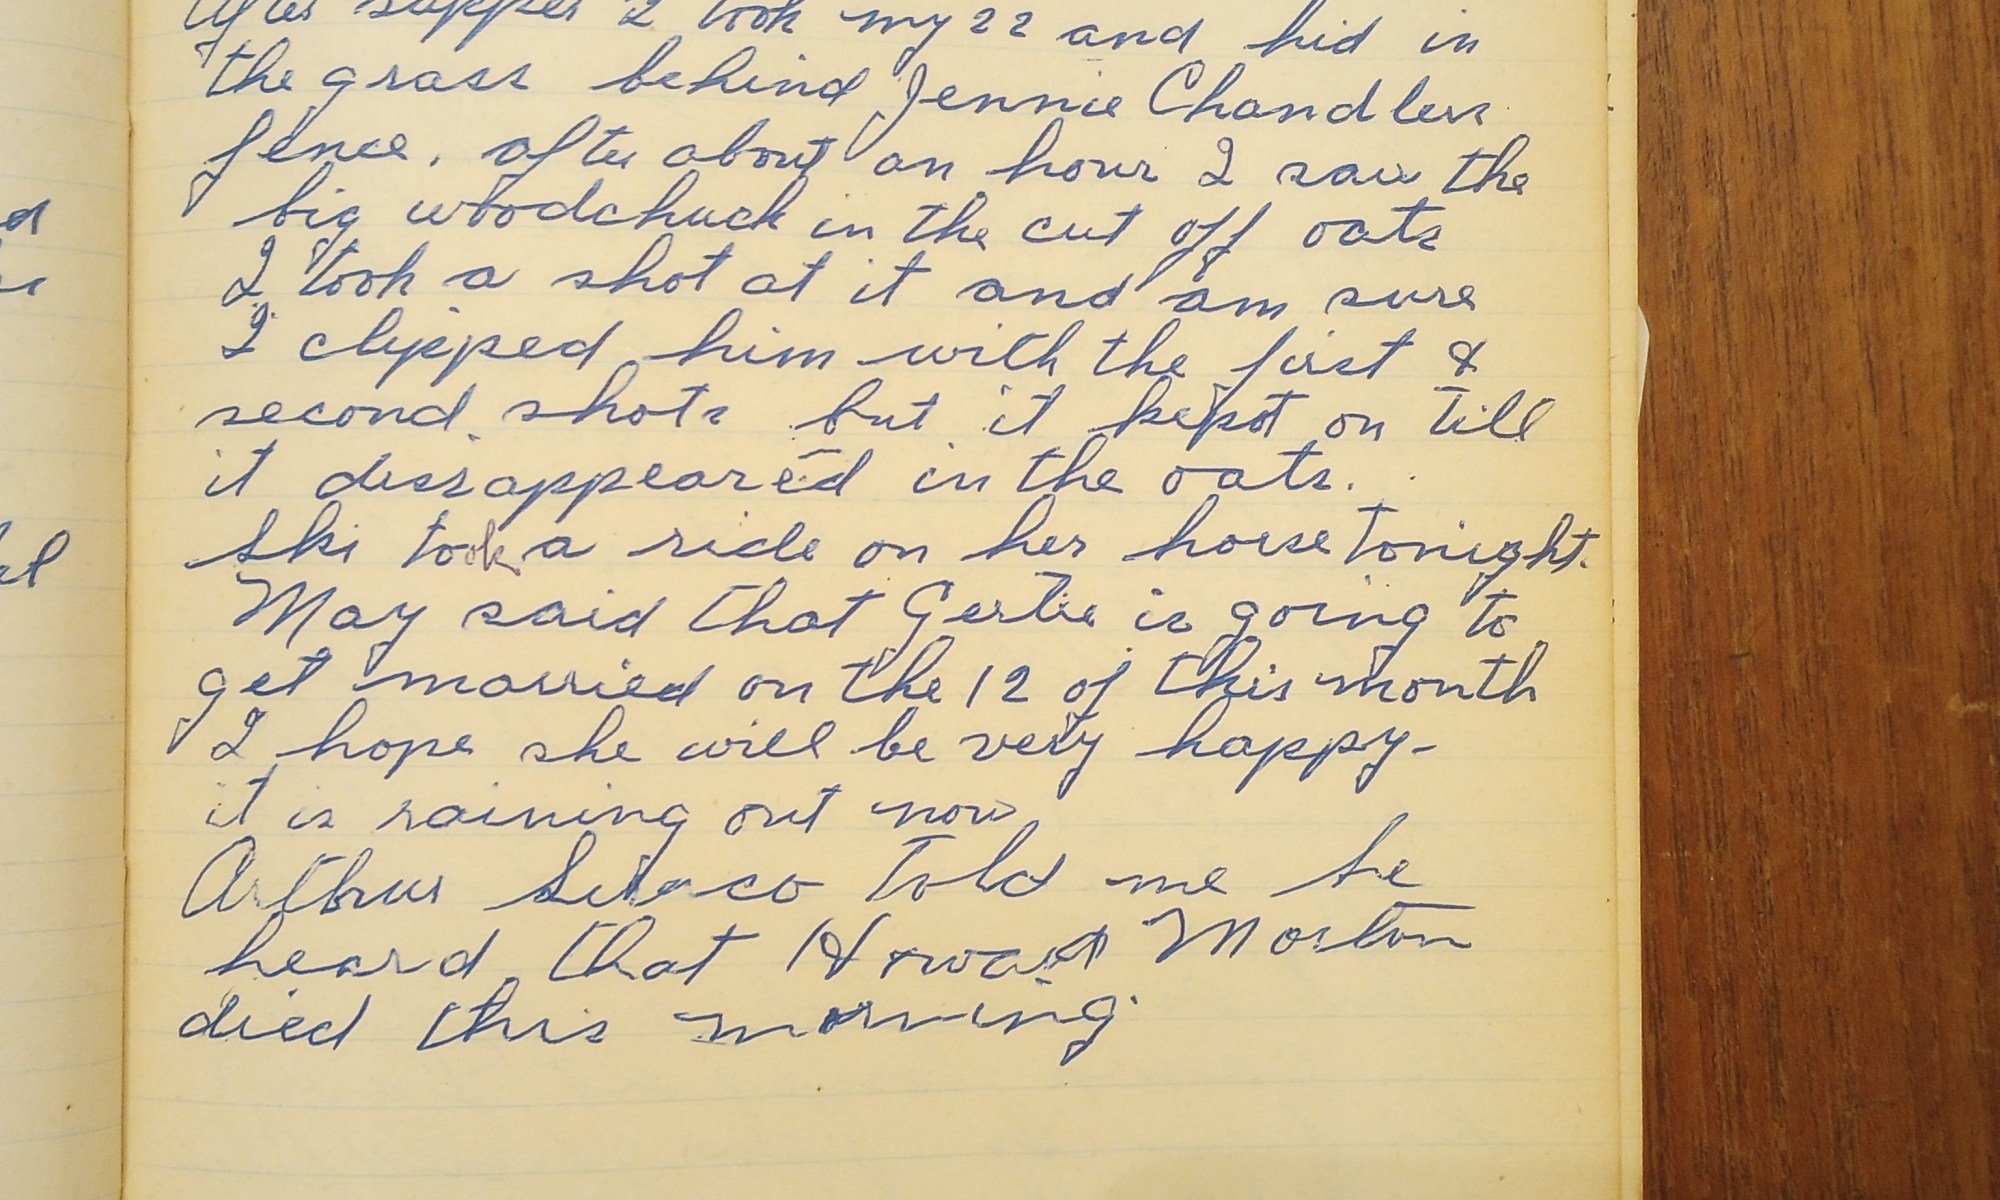 After supper I took my 22 and hid in
the grass behind Jennie Chandlers
fence. after about an hour I saw the
big woodchuck in the cut off oats
I took a shot at it and am sure
I clipped him with the first &
second shots but it kept on till
it dissappeared in the oats.
Ski took a ride on her horse tonight.
May said that Gertie is going to
get married on the 12 of this month
I hope she will be very happy-
it is raining out now
Arthur told me he
heard that Howard Morton
died this morning